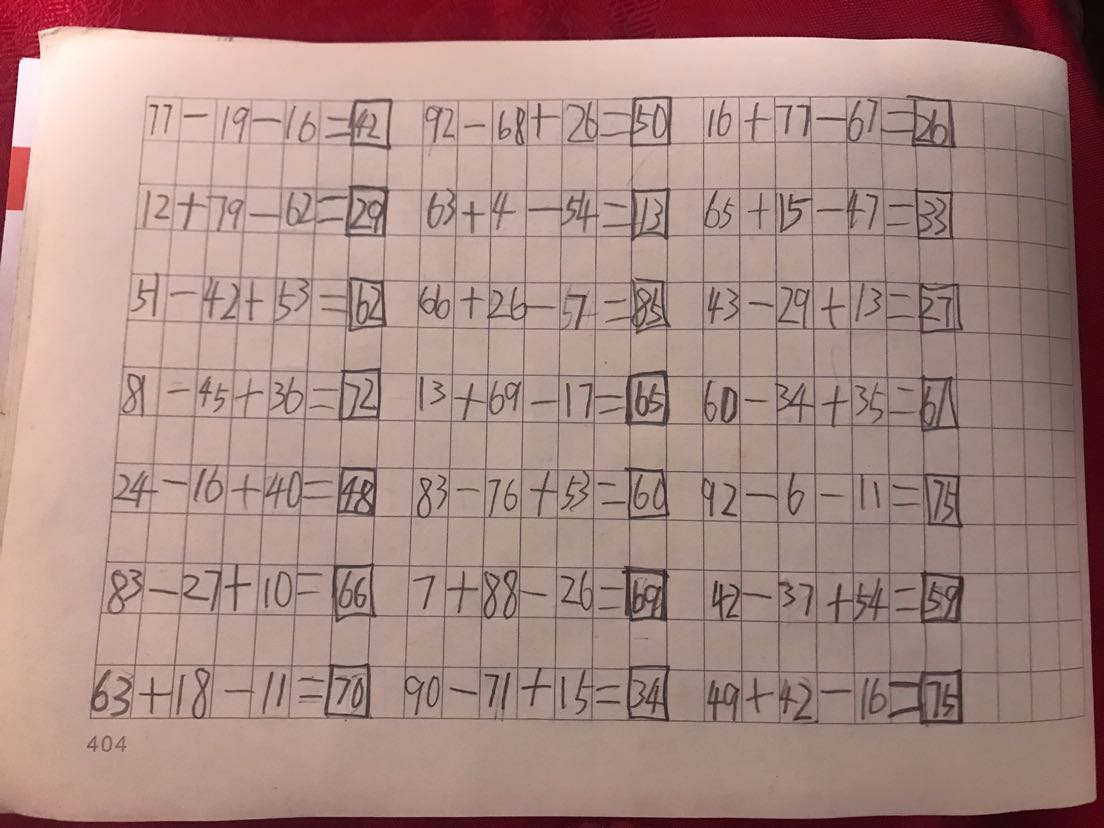 77-19-16=42 92-68+26=50 16+77-67=26
12+79-62=29 63+4-54=13 65+15-47=33
51-42+53=62 66+26-57=85 43-29+13=27
81-45+36=72 13+69-17=65 60-34+35=61
24-16+40=48 83-76+53=60 92-6-11=75
83-27+10=66 7+88-26=69 42-37+54=59
63+18-11=70 90-71+15=34 49+42-16=75
404